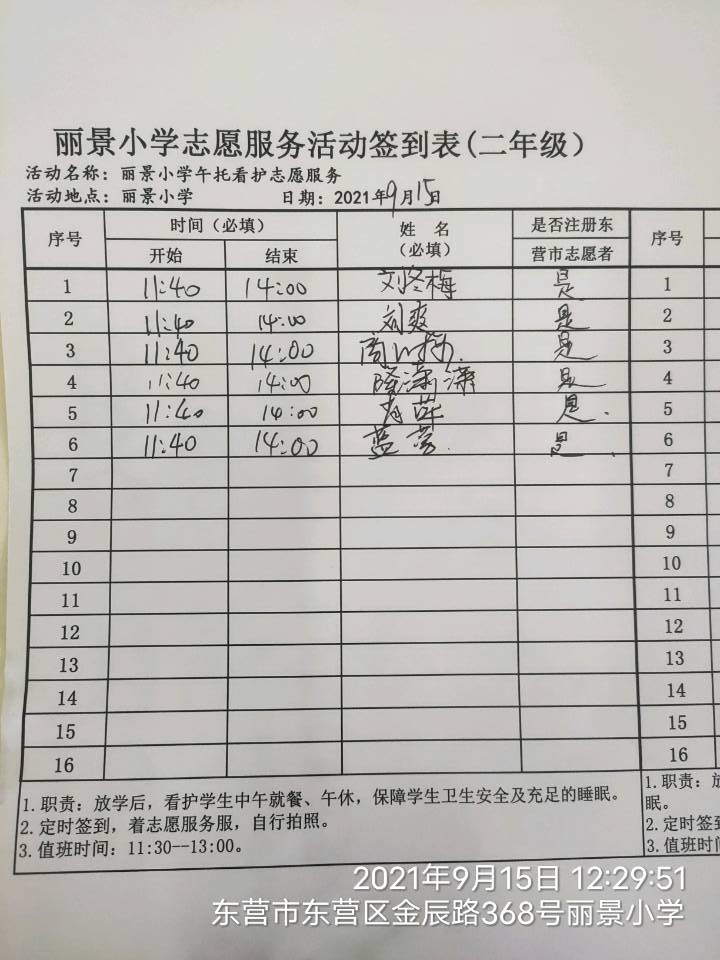 丽景小学志愿服务活动签到表(二年级)
活动名称：丽景小学午托看护志愿服务
活动地点：丽景小学 日期：2021年9月15日
序号 时间（必填） 姓 名 是否注册东 序号
开始 结束 （必填） 营市志愿者
1 11:40 14:00 刘冬梅 是 1
2 11:40 14:00 刘爽 是 2
3 11:40 14:00 是 3
4 11:40 14:00 隆潇潇 是 4
5 11:40 14:00 是. 5
6 11:40 14:00 蓝 是. 6
7 7
8 8
9 9
10 10
11 11
12 12
13 13
14 14
15 15
16 16
1.职责：放学后，看护学生中午就餐、午休，保障学生卫生安全及充足的睡眠。 1.职责：放
眠。
2.定时签到，着志愿服务服，自行拍照。 2.定时签到
3.值班时间：11:30--13:00。 3.值班时间
2021年9月15日 12:29:51
东营市东营区金辰路368号丽景小学